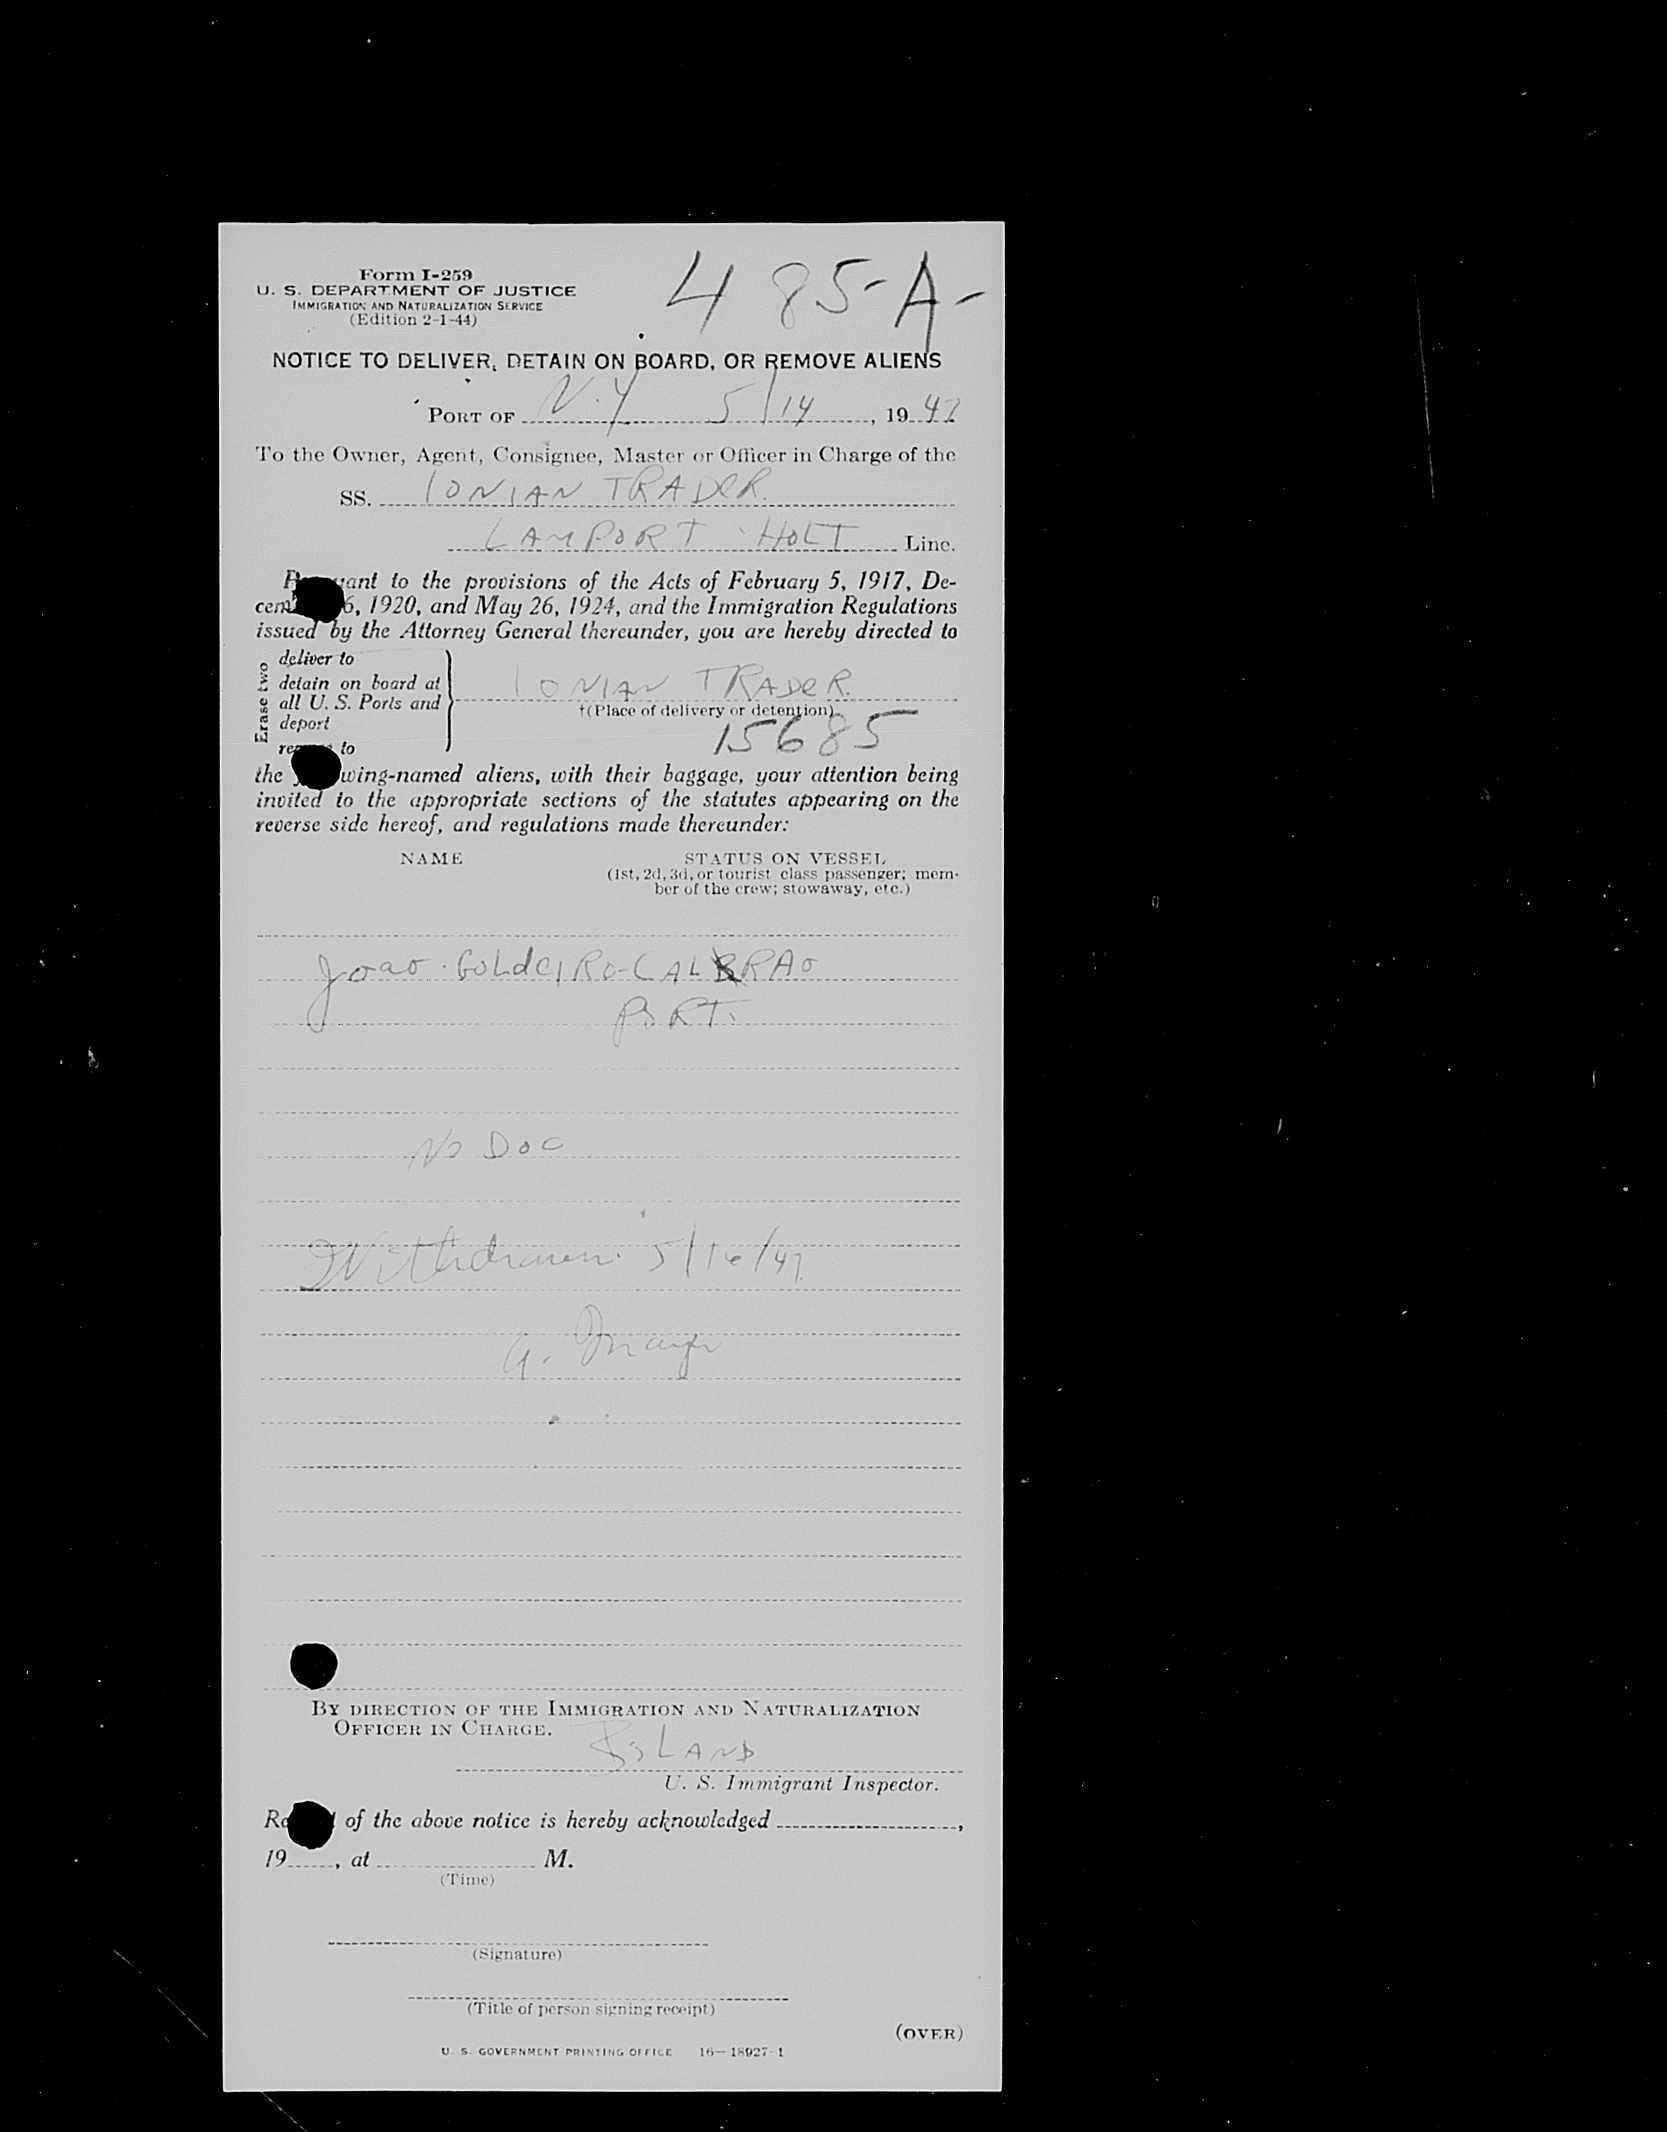 Form I-259
U. S. DEPARTMENT OF JUSTICE
IMMIGRATION AND NATURALIZATION SERVICE
(Edition 2-1-44)
485-A-
NOTICE TO DELIVER, DETAIN ON BOARD, OR REMOVE ALIENS
PORT OF N.Y 5/14, 1947
To the Owner, Agent, Consignee, Master or Officer in Charge of the
SS. IONIAN TRADER.
LAMPORT HOLT Line.
to the provisions of the Acts of February 5, 1917, De-
6, 1920, and May 26, 1924, and the Immigration Regulations
issued by the Attorney General thereunder, you are hereby directed to
Erase two
deliver to
detain on board at
all U. S. Ports and
deport
to
IONIAN TRADER.
†(Place of delivery or detention)
15685
the wing-named aliens, with their baggage, your attention being
invited to the appropriate sections of the statutes appearing on the
reverse side hereof, and regulations made thereunder:
NAME STATUS ON VESSEL
(1st, 2d, 3d, or tourist class passenger; mem-
ber of the crew; stowaway, etc.)
Joao GOLDEIRO-CALRAO
PORT.
No Doc
Withdrawn 5/16/47
By direction of the Immigration and Naturalization
Officer in Charge.
ISLAND
U. S. Immigrant Inspector.
of the above notice is hereby acknowledged ,
19 , at M.
(Time)
(Signature)
(Title of person signing receipt)
(OVER)
U. S. GOVERNMENT PRINTING OFFICE 16—18927-1